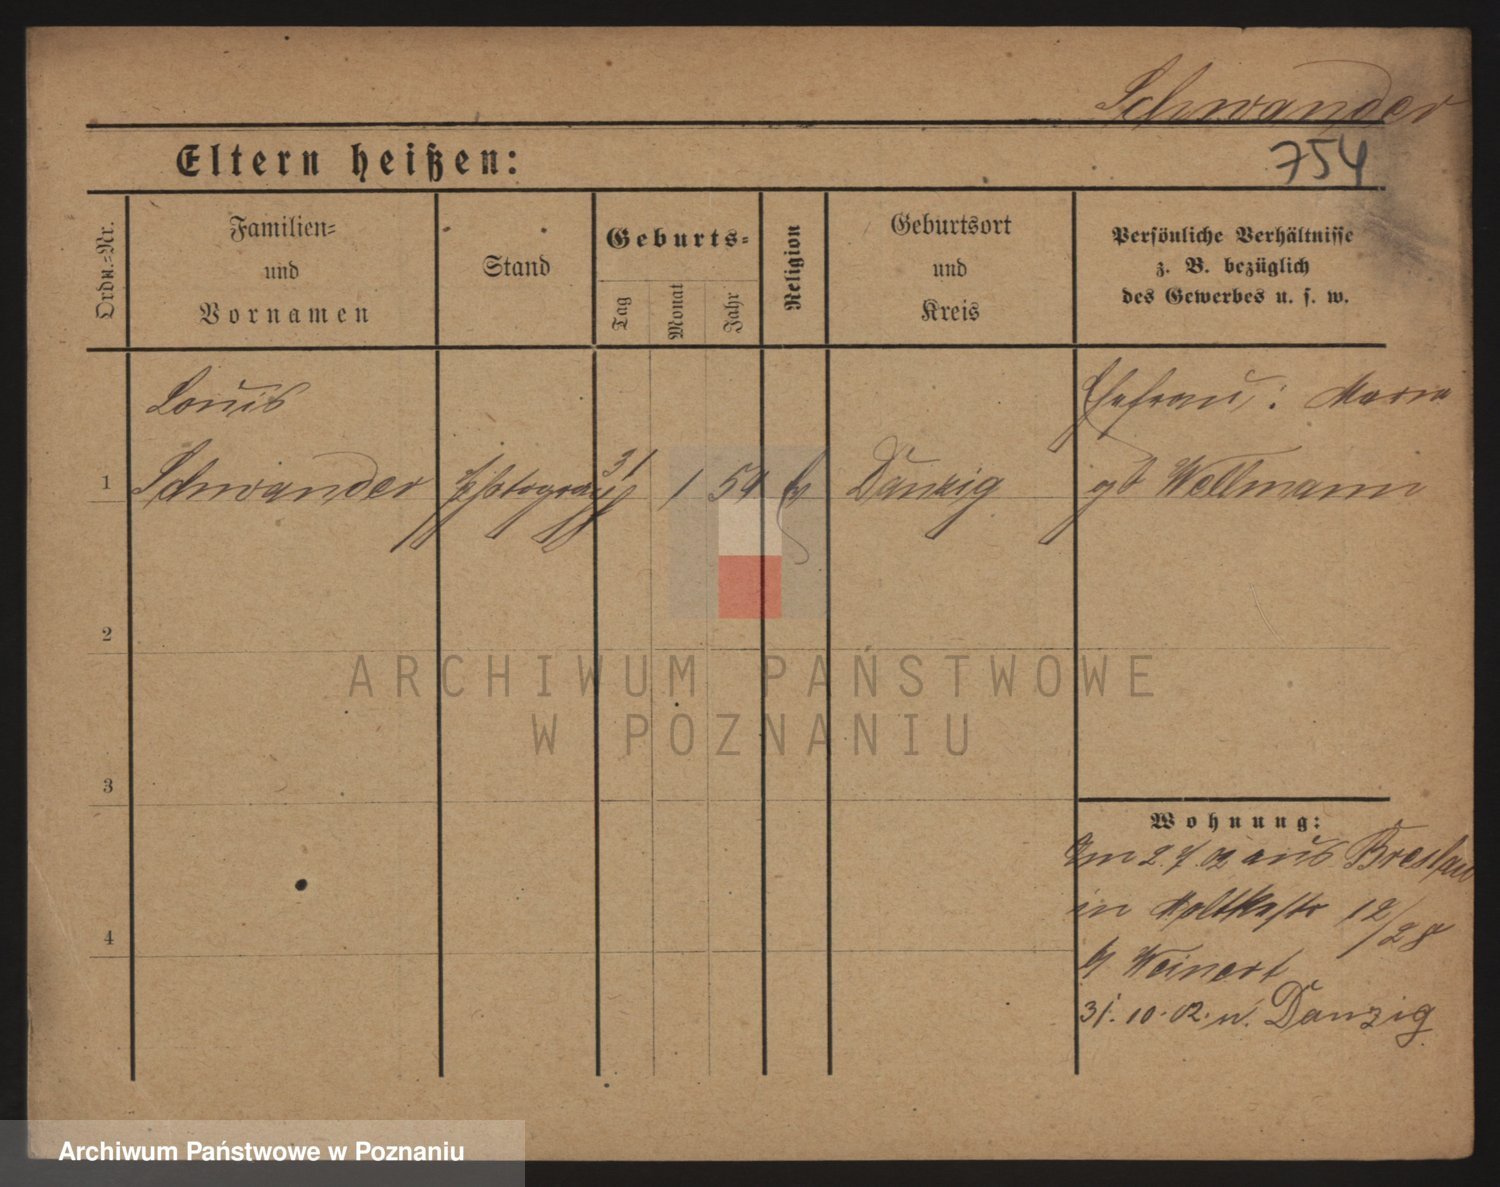 Schwander
Eltern heißen:
754
Ordn.-Nr.
Familien-
und
Vornamen
Stand
Geburts-
Tag
Monat
Jahr
Religion
Geburtsort
und
Kreis
Persönliche Verhältnisse
z. B. bezüglich
des Gewerbes u. s. w.
Louis
Ehefrau: Maria
1 Schwander Photograph 31 1 54 Danzig gb Wellmann
2
3
4
Wohnung:
Am 2.7.02 aus Breslau
in Moltkestr 12/28
b/ Weinert
31.10.02. n. Danzig
ARCHIWUM PAŃSTWOWE
W POZNANIU
Archiwum Państwowe w Poznaniu